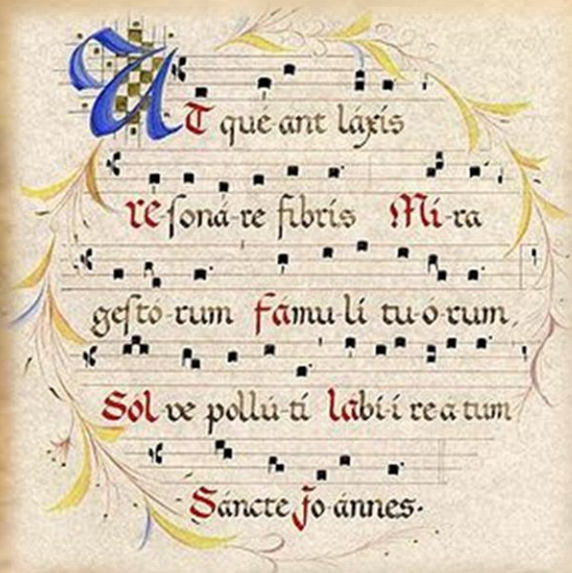 UT quéant láxis
resoná-re fibris Mí-ra
gestó-rum fámu-lí tu-ó-rum,
Sol ve pollú-tí lábi-í reátum
Sáncte Joánnes.